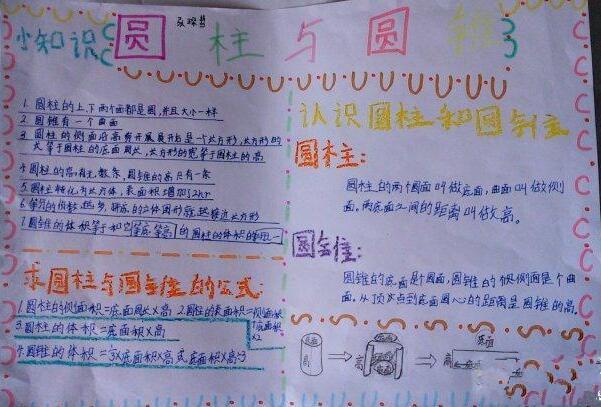 小知识
圆柱与圆锥
1. 圆柱的上、下两个面都是圆,并且大小一样
2. 圆锥有一个曲面
3. 圆柱的侧面沿高剪开展开后是一个长方形,长方形的
长等于圆柱的底面周长,长方形的宽等于圆柱的高
4. 圆柱的高有无数条,圆锥的高只有一条
5. 圆柱转化为长方体,表面积增加了2hr
7. 圆锥的体积等于和它等底等高的圆柱的体积的
求圆柱与圆锥的公式:
1. 圆柱的侧面积=底面周长×高 2. 圆柱的表面积=侧面积
+底面积
×2
3. 圆柱的体积=底面积×高
4. 圆锥的体积=⅓×底面积×高或底面积×高÷3
认识圆柱和圆锥
圆柱:
圆柱的两个圆面叫做底面,曲面叫做侧
面。两底面之间的距离叫做高。
圆锥:
圆锥的底面是个圆面,圆锥的侧面是个曲
面,从顶点到底面圆心的距离是圆锥的高。
高
底面
高
底面
高